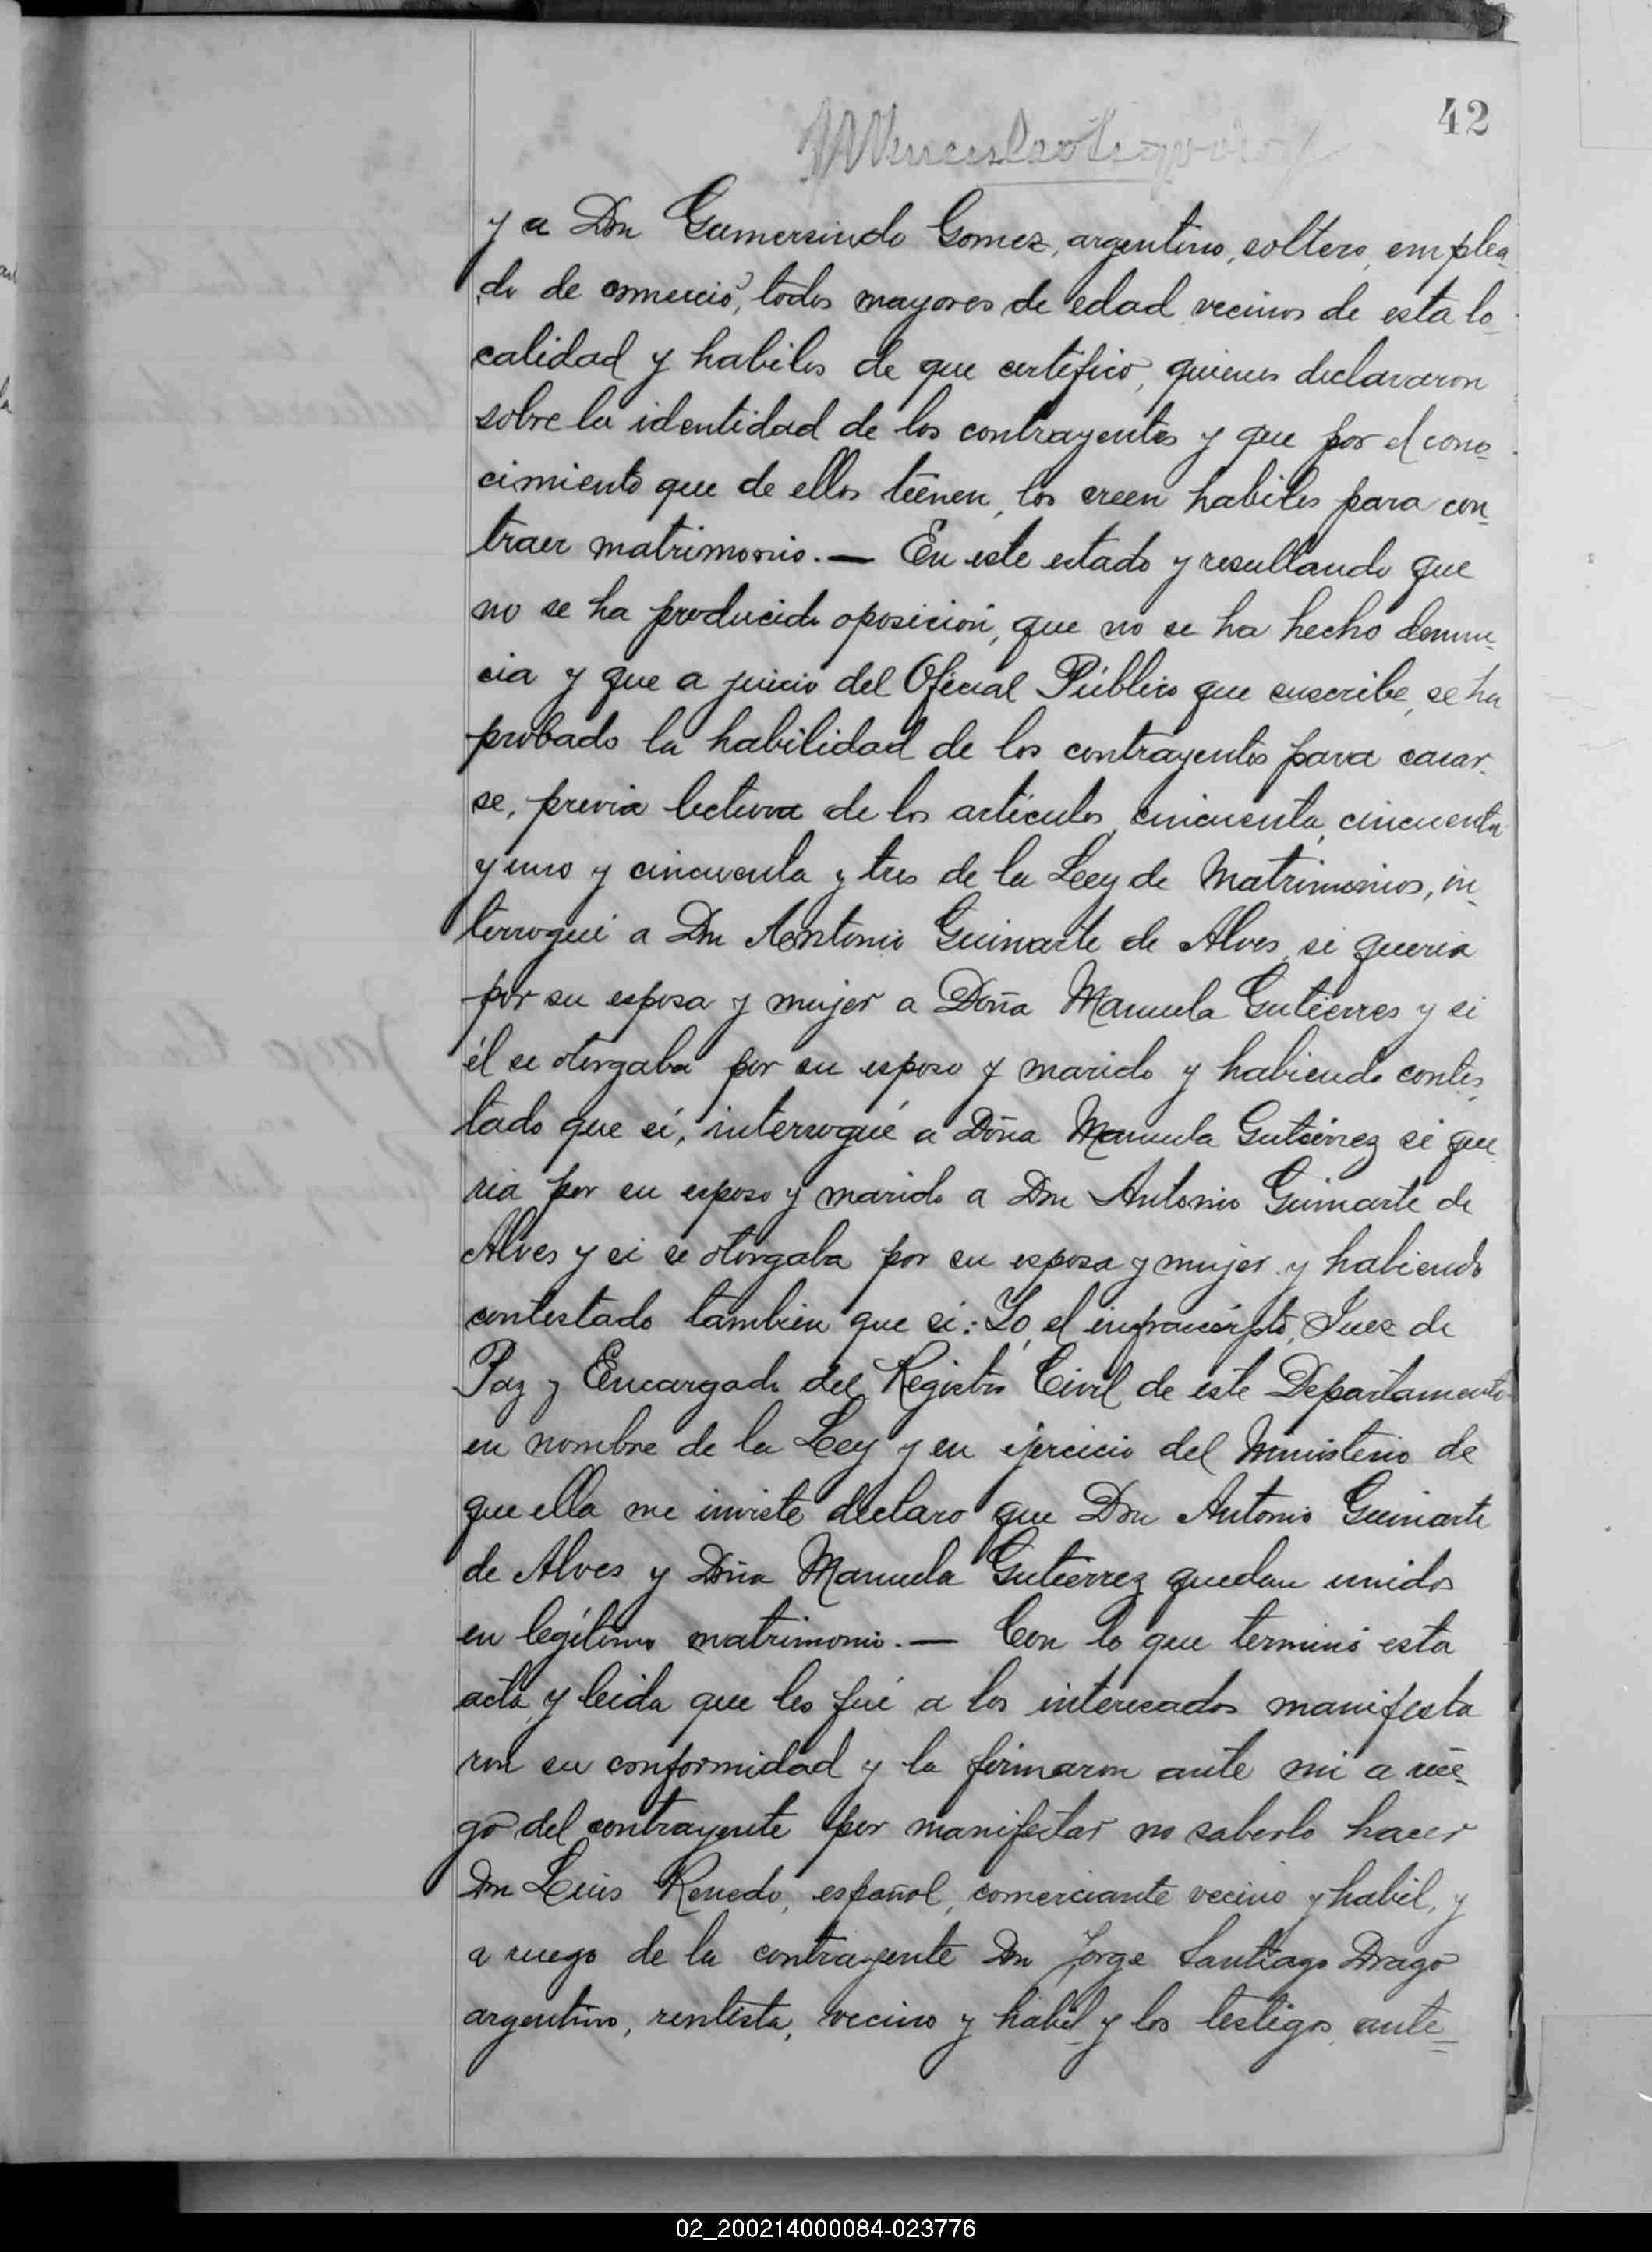 42
y a Don Gumersindo Gomez, argentino, soltero, emplea
do de comercio, todos mayores de edad vecinos de esta lo
calidad y habiles de que certifico, quienes declararon
sobre la identidad de los contrayentes y que por el cono
cimiento que de ellos tienen, los creen habiles para con
traer matrimonio. — En este estado y resultando que
no se ha producido oposición, que no se ha hecho denun
cia y que a juicio del Oficial Público que suscribe, se ha
probado la habilidad de los contrayentes para casar
se, previa lectura de los artículos cincuenta, cincuenta
y uno y cincuenta y tres de la Ley de Matrimonios, in
terrogué a Dn Antonio Guinarte de Alves, si queria
por su esposa y mujer a Doña Manuela Gutierres y si
él se otorgaba por su esposo y marido y habiendo contes
tado que sí, interrogué a Doña Manuela Gutiérrez si que
ria por su esposo y marido a Dn Antonio Guinarte de
Alves y si se otorgaba por su esposa y mujer y habiendo
contestado tambien que si: Yo, el infrascripto, Juez de
Paz y Encargado del Registro Civil de este Departamento
en nombre de la Ley y en ejercicio del Ministerio de
que ella me inviste declaro que Don Antonio Guinarte
de Alves y Doña Manuela Gutierrez quedan unidos
en legítimo matrimonio. — Con lo que terminó esta
acta y leida que les fué a los interesados manifesta
ron su conformidad y la firmaron ante mi a rue
go del contrayente por manifestar no saberlo hacer
Dn Luis Renedo, español, comerciante vecino y habil, y
a ruego de la contrayente Dn Jorge Santiago Drago
argentino, rentista, vecino y habil y los testigos ante
02_200214000084-023776